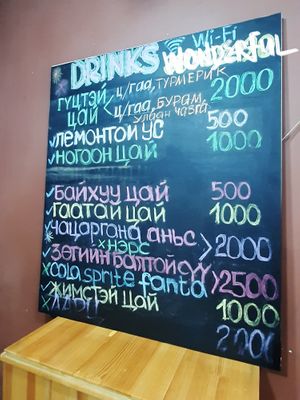 DRINKS Wi-Fi
WONDERFUL
ГҮЦТЭЙ ЦАЙ < Ц/ГАА, ТУРМЕРИК 2000
Ц/ГАА, БУРАМ,
УЛААН ЧАВГА
ЛЕМОНТОЙ УС 500
НОГООН ЦАЙ 1000
БАЙХУУ ЦАЙ 500
ГААТАЙ ЦАЙ 1000
ЧАЦАРГАНА АНЬС >2000
НЭРС
ЗӨГИЙН БАЛТОЙ СҮҮ >2500
cola sprite fanta
ЖИМСТЭЙ ЦАЙ 1000
2000